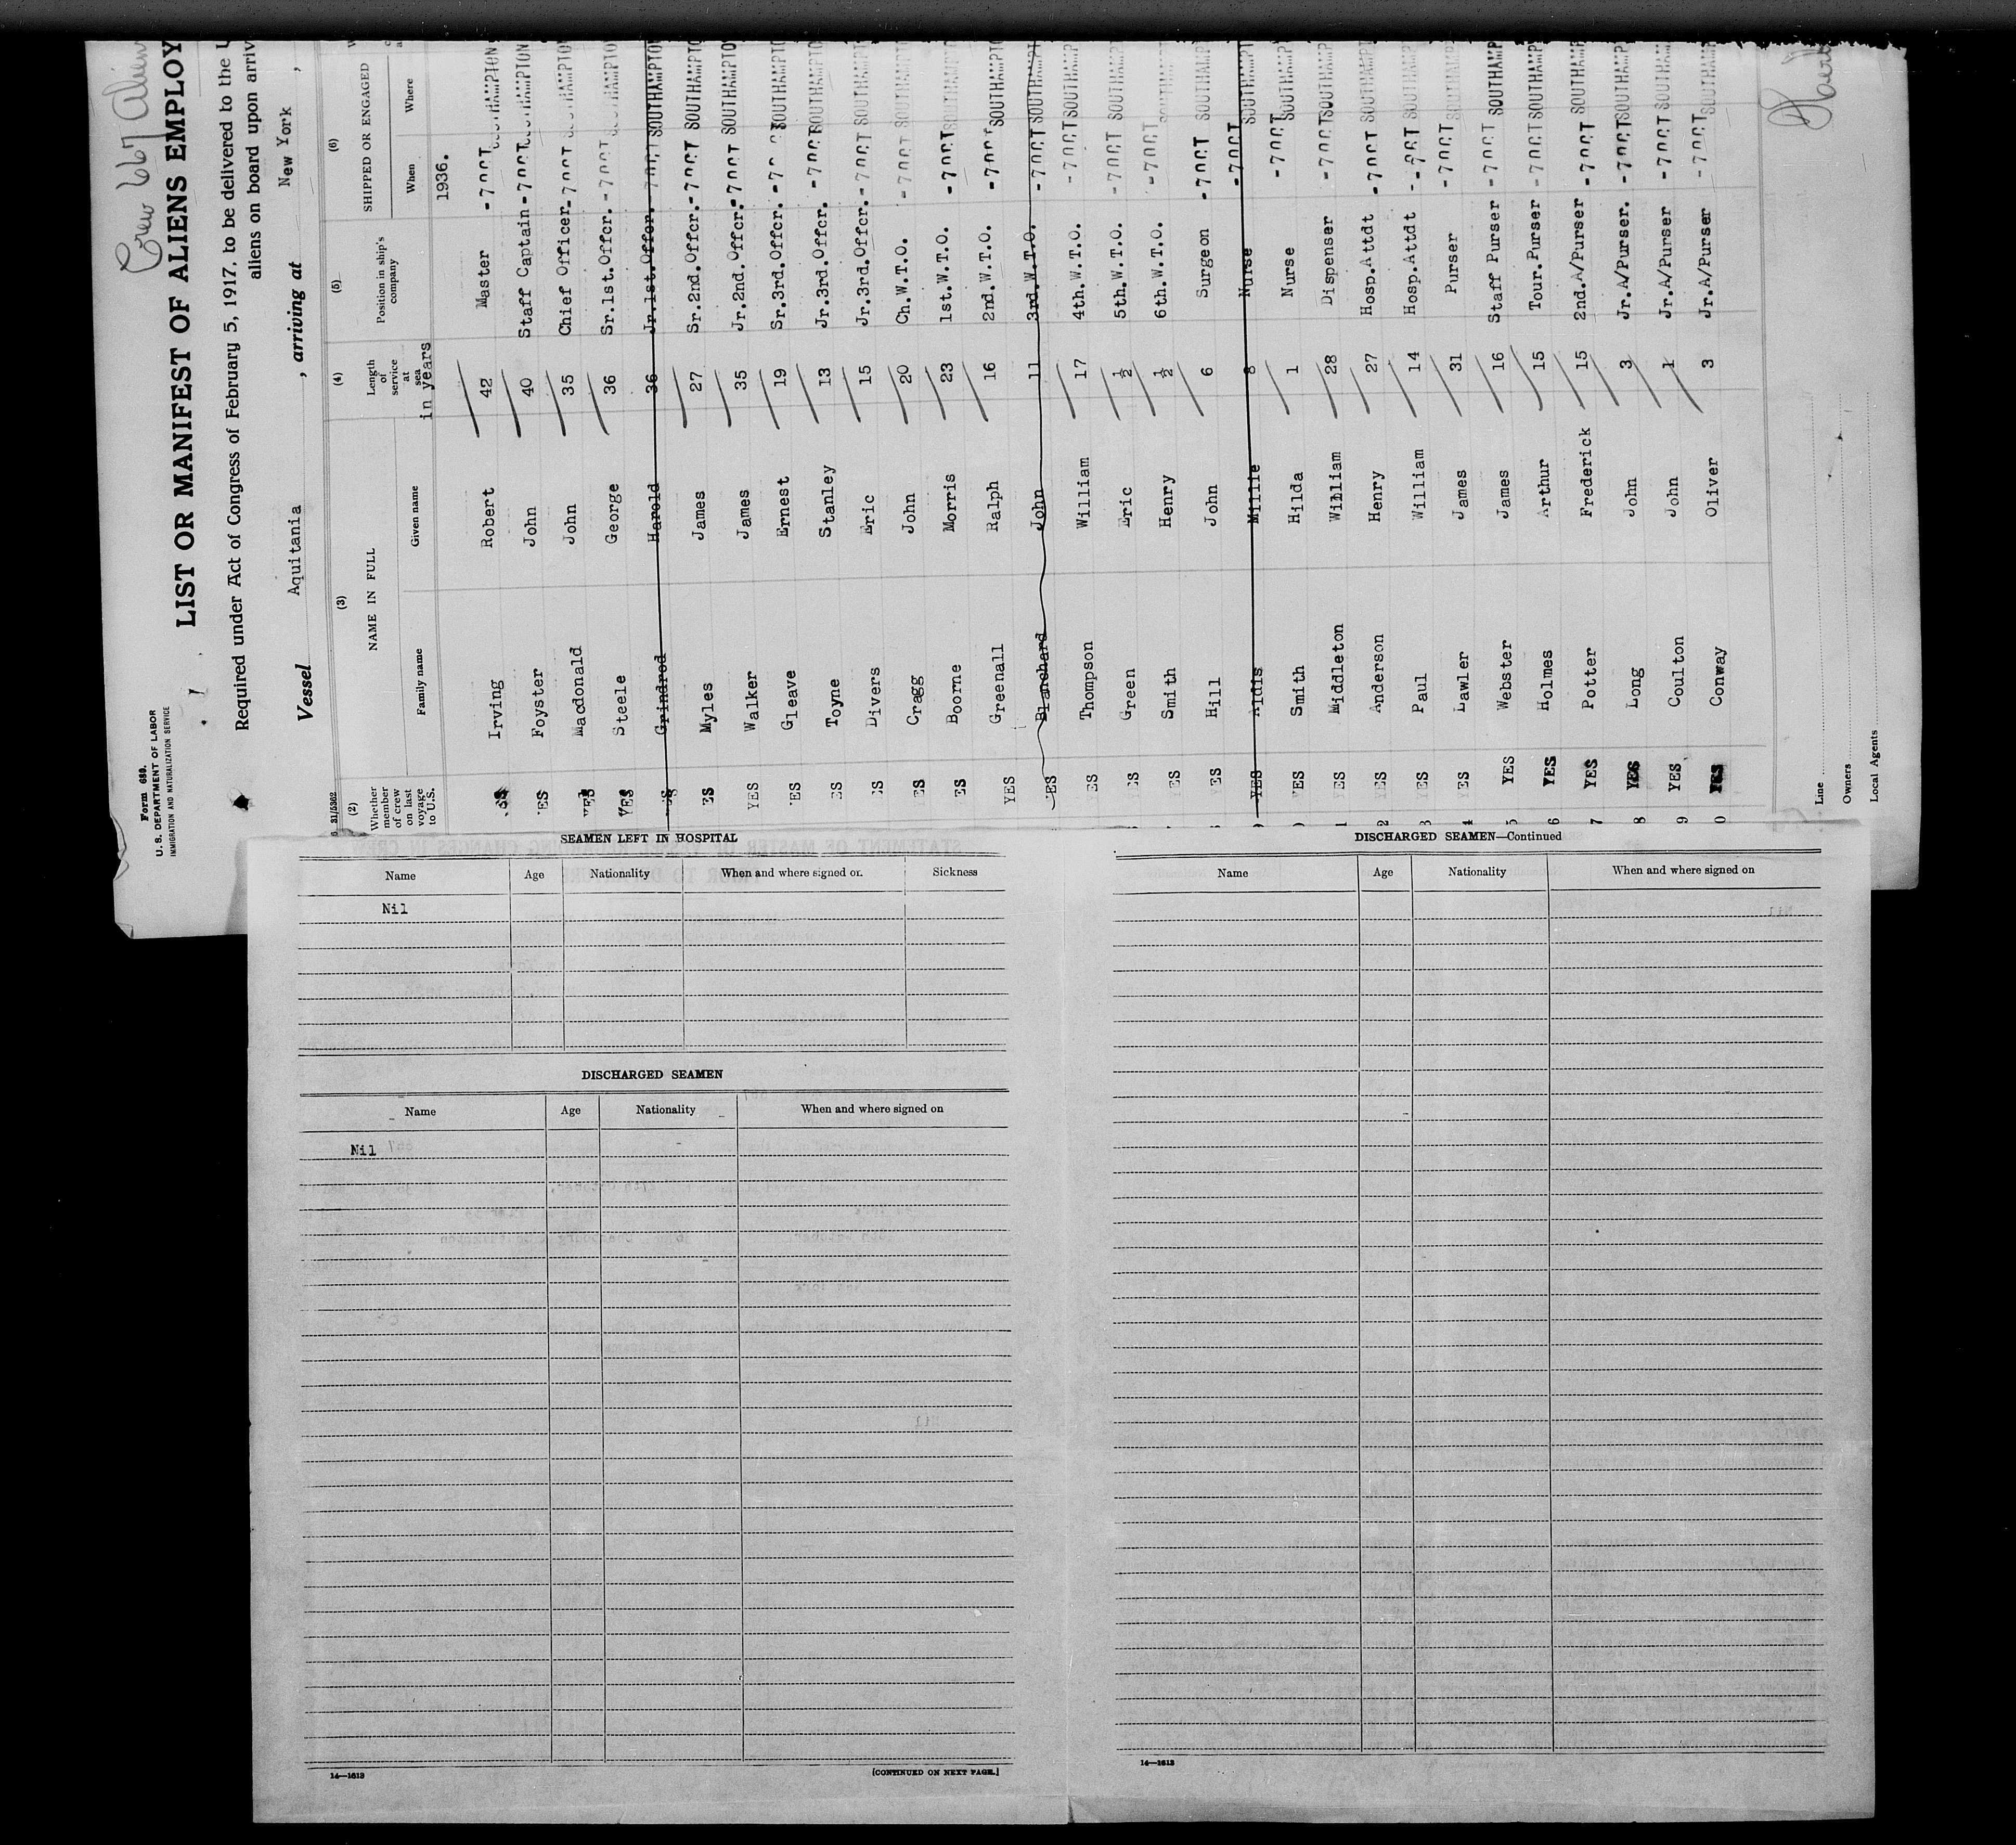 Crew 667 Aliens
Form 689.
U. S. DEPARTMENT OF LABOR
IMMIGRATION AND NATURALIZATION SERVICE
LIST OR MANIFEST OF ALIENS EMPLOY
Required under Act of Congress of February 5, 1917, to be delivered to the U
aliens on board upon arriv
Vessel Aquitania , arriving at New York ,
31/5362
(2) (3) (4) (5) (6)
Whether member of crew on last voyage to U.S. NAME IN FULL Length of service at sea Position in ship's company SHIPPED OR ENGAGED
Family name Given name in years When Where
1936.
Irving Robert 42 Master - 7 OCT SOUTHAMPTON
YES Foyster John 40 Staff Captain - 7 OCT SOUTHAMPTON
YES Macdonald John 35 Chief Officer - 7 OCT SOUTHAMPTO
YES Steele George 36 Sr.1st.Offcr. - 7 OCT SOUTHAMPTO
Grindrod Harold 36 Jr.1st.Offcr. 7 OCT SOUTHAMPTO
ES Myles James 27 Sr.2nd.Offcr. - 7 OCT SOUTHAMPTO
YES Walker James 35 Jr.2nd.Offcr. - 7 OCT SOUTHAMPTO
ES Gleave Ernest 19 Sr.3rd.Offcr. - 7 SOUTHAMPTO
ES Toyne Stanley 13 Jr.3rd.Offcr. - 7 OCT SOUTHAMPTO
ES Divers Eric 15 Jr.3rd.Offcr. - 7 OCT SOUTHAMPT
ES Cragg John 20 Ch.W.T.O. - 7 OCT SOUTHAMPT
ES Boorne Morris 23 1st.W.T.O. - 7 OCT SOUTHAMPT
YES Greenall Ralph 16 2nd.W.T.O. - 7 OCT SOUTHAMPT
YES Blanchard John 11 3rd.W.T.O. - 7 OCT SOUTHAMPT
ES Thompson William 17 4th.W.T.O. - 7 OCT SOUTHAMP
ES Green Eric ½ 5th.W.T.O. - 7 OCT SOUTHAMP
ES Smith Henry ½ 6th.W.T.O. - 7 OCT SOUTHAMP
ES Hill John 6 Surgeon - 7 OCT SOUTHAMP
YES Aldis Millie 8 Nurse - 7 OCT SOUTHAMP
YES Smith Hilda 1 Nurse - 7 OCT SOUTHAMP
YES Middleton William 28 Dispenser - 7 OCT SOUTHAMP
YES Anderson Henry 27 Hosp.Attdt - 7 OCT SOUTHAMP
YES Paul William 14 Hosp.Attdt - OCT SOUTHAMP
YES Lawler James 31 Purser - 7 OCT SOUTHAMP
YES Webster James 16 Staff Purser - 7 OCT SOUTHAMP
YES Holmes Arthur 15 Tour.Purser - 7 OCT SOUTHAMP
YES Potter Frederick 15 2nd.A/Purser - 7 OCT SOUTHAMP
YES Long John 3 Jr.A/Purser. - 7 OCT SOUTHAMP
YES Coulton John 1 Jr.A/Purser - 7 OCT SOUTHAMP
YES Conway Oliver 3 Jr.A/Purser - 7 OCT SOUTHAMP
Line
Owners
Local Agents
SEAMEN LEFT IN HOSPITAL
Name Age Nationality When and where signed on Sickness
Nil
DISCHARGED SEAMEN
Name Age Nationality When and where signed on
Nil
14—1613 [CONTINUED ON NEXT PAGE.]
DISCHARGED SEAMEN—Continued
Name Age Nationality When and where signed on
14—1613